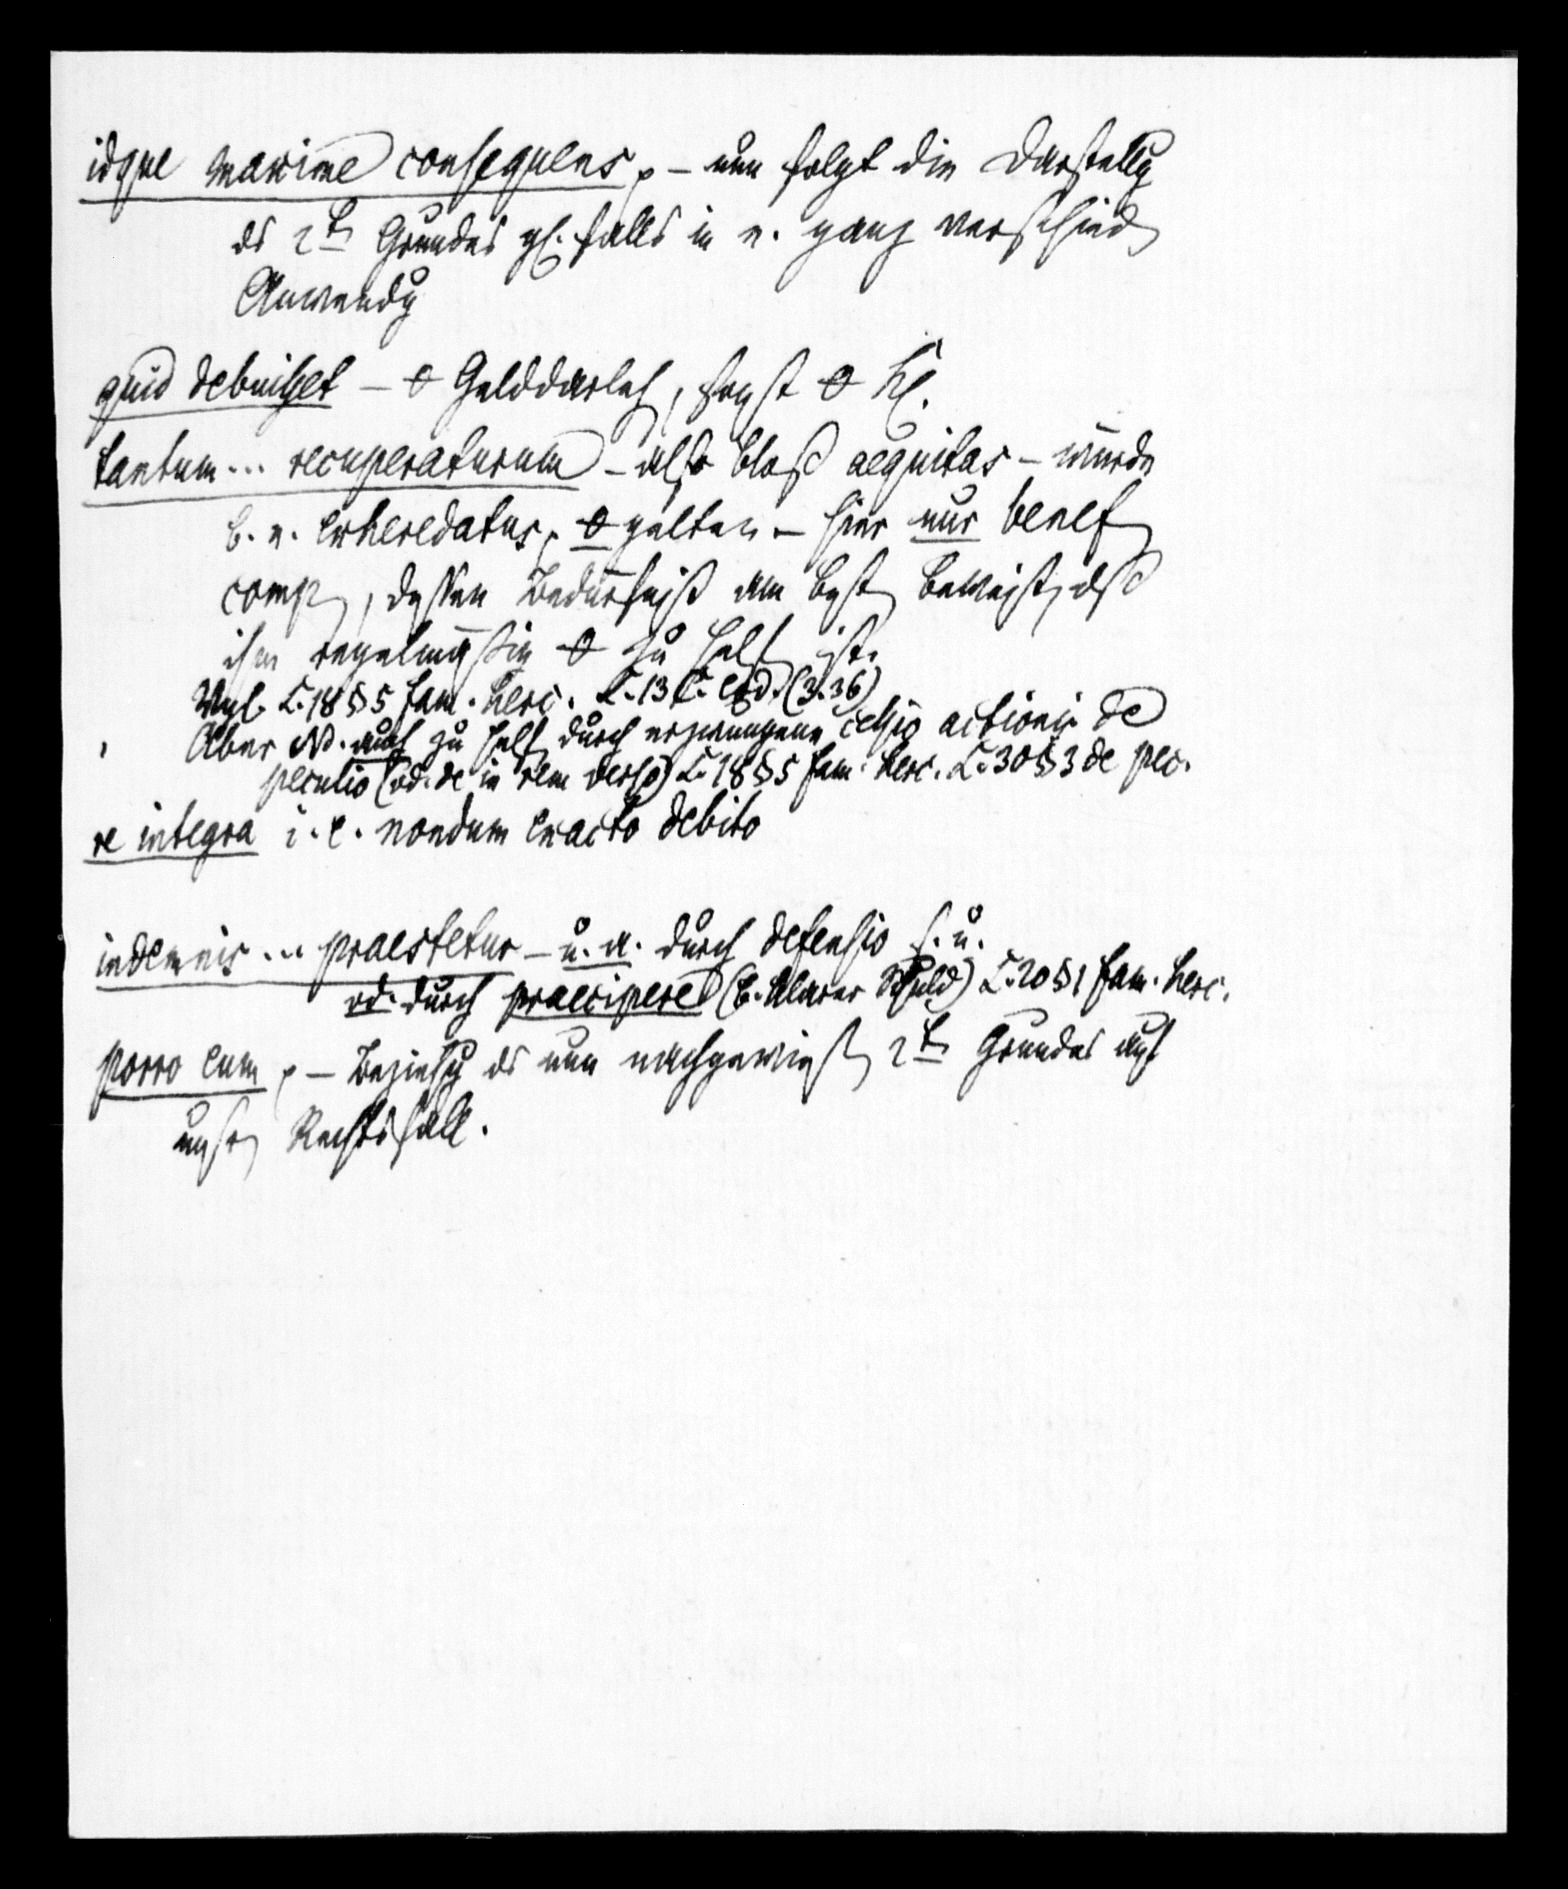 idque maxime consequens p – nun folgt die Darstellg
ds 2t Grundes gl. falls in e. ganz verschied
Anwendg
quid debuisset – 0 Gelddarleh, sonst 0 Kl.
tantum ... recuperaturum – also bloß aequitas – würde
b. e. exheredatus, 0 gelten – hier nur benef
comp, dessen Bedürfniß am best beweist, dß
ihm regelmäßig 0 zu helf ist.
Vgl. L. 18 § 5 fam. herc. L. 13 C. eod. (3. 36)
Aber NB. auch zu helf durch erzwungene cessio actionis de
peculio (od. de in rem verso) L. 18 § 5 fam. herc. L. 30 § 3 de pec.
re integra i. e. nondum exacto debito
indemnis ... praestetur – u. a. durch defensio s. u.
od. durch praecipere (b. klarer Schuld) L. 20 § 1 fam. herc.
porro cum p – Beziehg ds nun nachgewies 2t Grundes auf
unsr Rechtsfall.